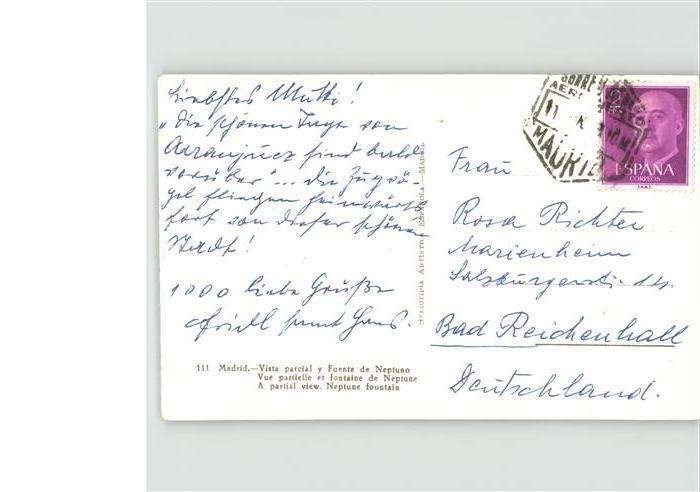 Liebstes Mutti!
"Die schönen Tage von
Aranjuez sind bald
vorüber"... die Zugvö-
gel fliegen heimwärts
fort von dieser schönen
Stadt!
1000 liebe Grüße
samt Hans.
111 Madrid.—Vista parcial y Fuente de Neptuno
Vue partielle et fontaine de Neptune
A partial view. Neptune fountain
HELIOTIPIA ARTISTICA ESPAÑOLA — MADRID
MADRID
ESPAÑA
CORREOS
Frau
Rosa Richter
Marienheim
Salzburgerstr. 14.
Bad Reichenhall
Deutschland.